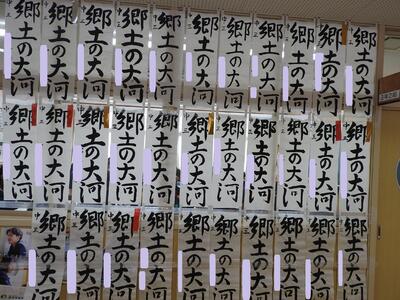 郷土の大河
郷土の大河
郷土の大河
郷土の大河
郷土の大河
郷土の大河
郷土の大河
郷土の大河
郷土の大河
郷土の大河
郷土の大河
中三
郷土の大河
郷土の大河
郷土の大河
郷土の大河
郷土の大河
郷土の大河
郷土の大河
郷土の大河
郷土の大河
郷土の大河
郷土の大河
中三
郷土の大河
郷土の大河
郷土の大河
郷土の大河
郷土の大河
郷土の大河
郷土の大河
郷土の大河
郷土の大河
郷土の大河
中三